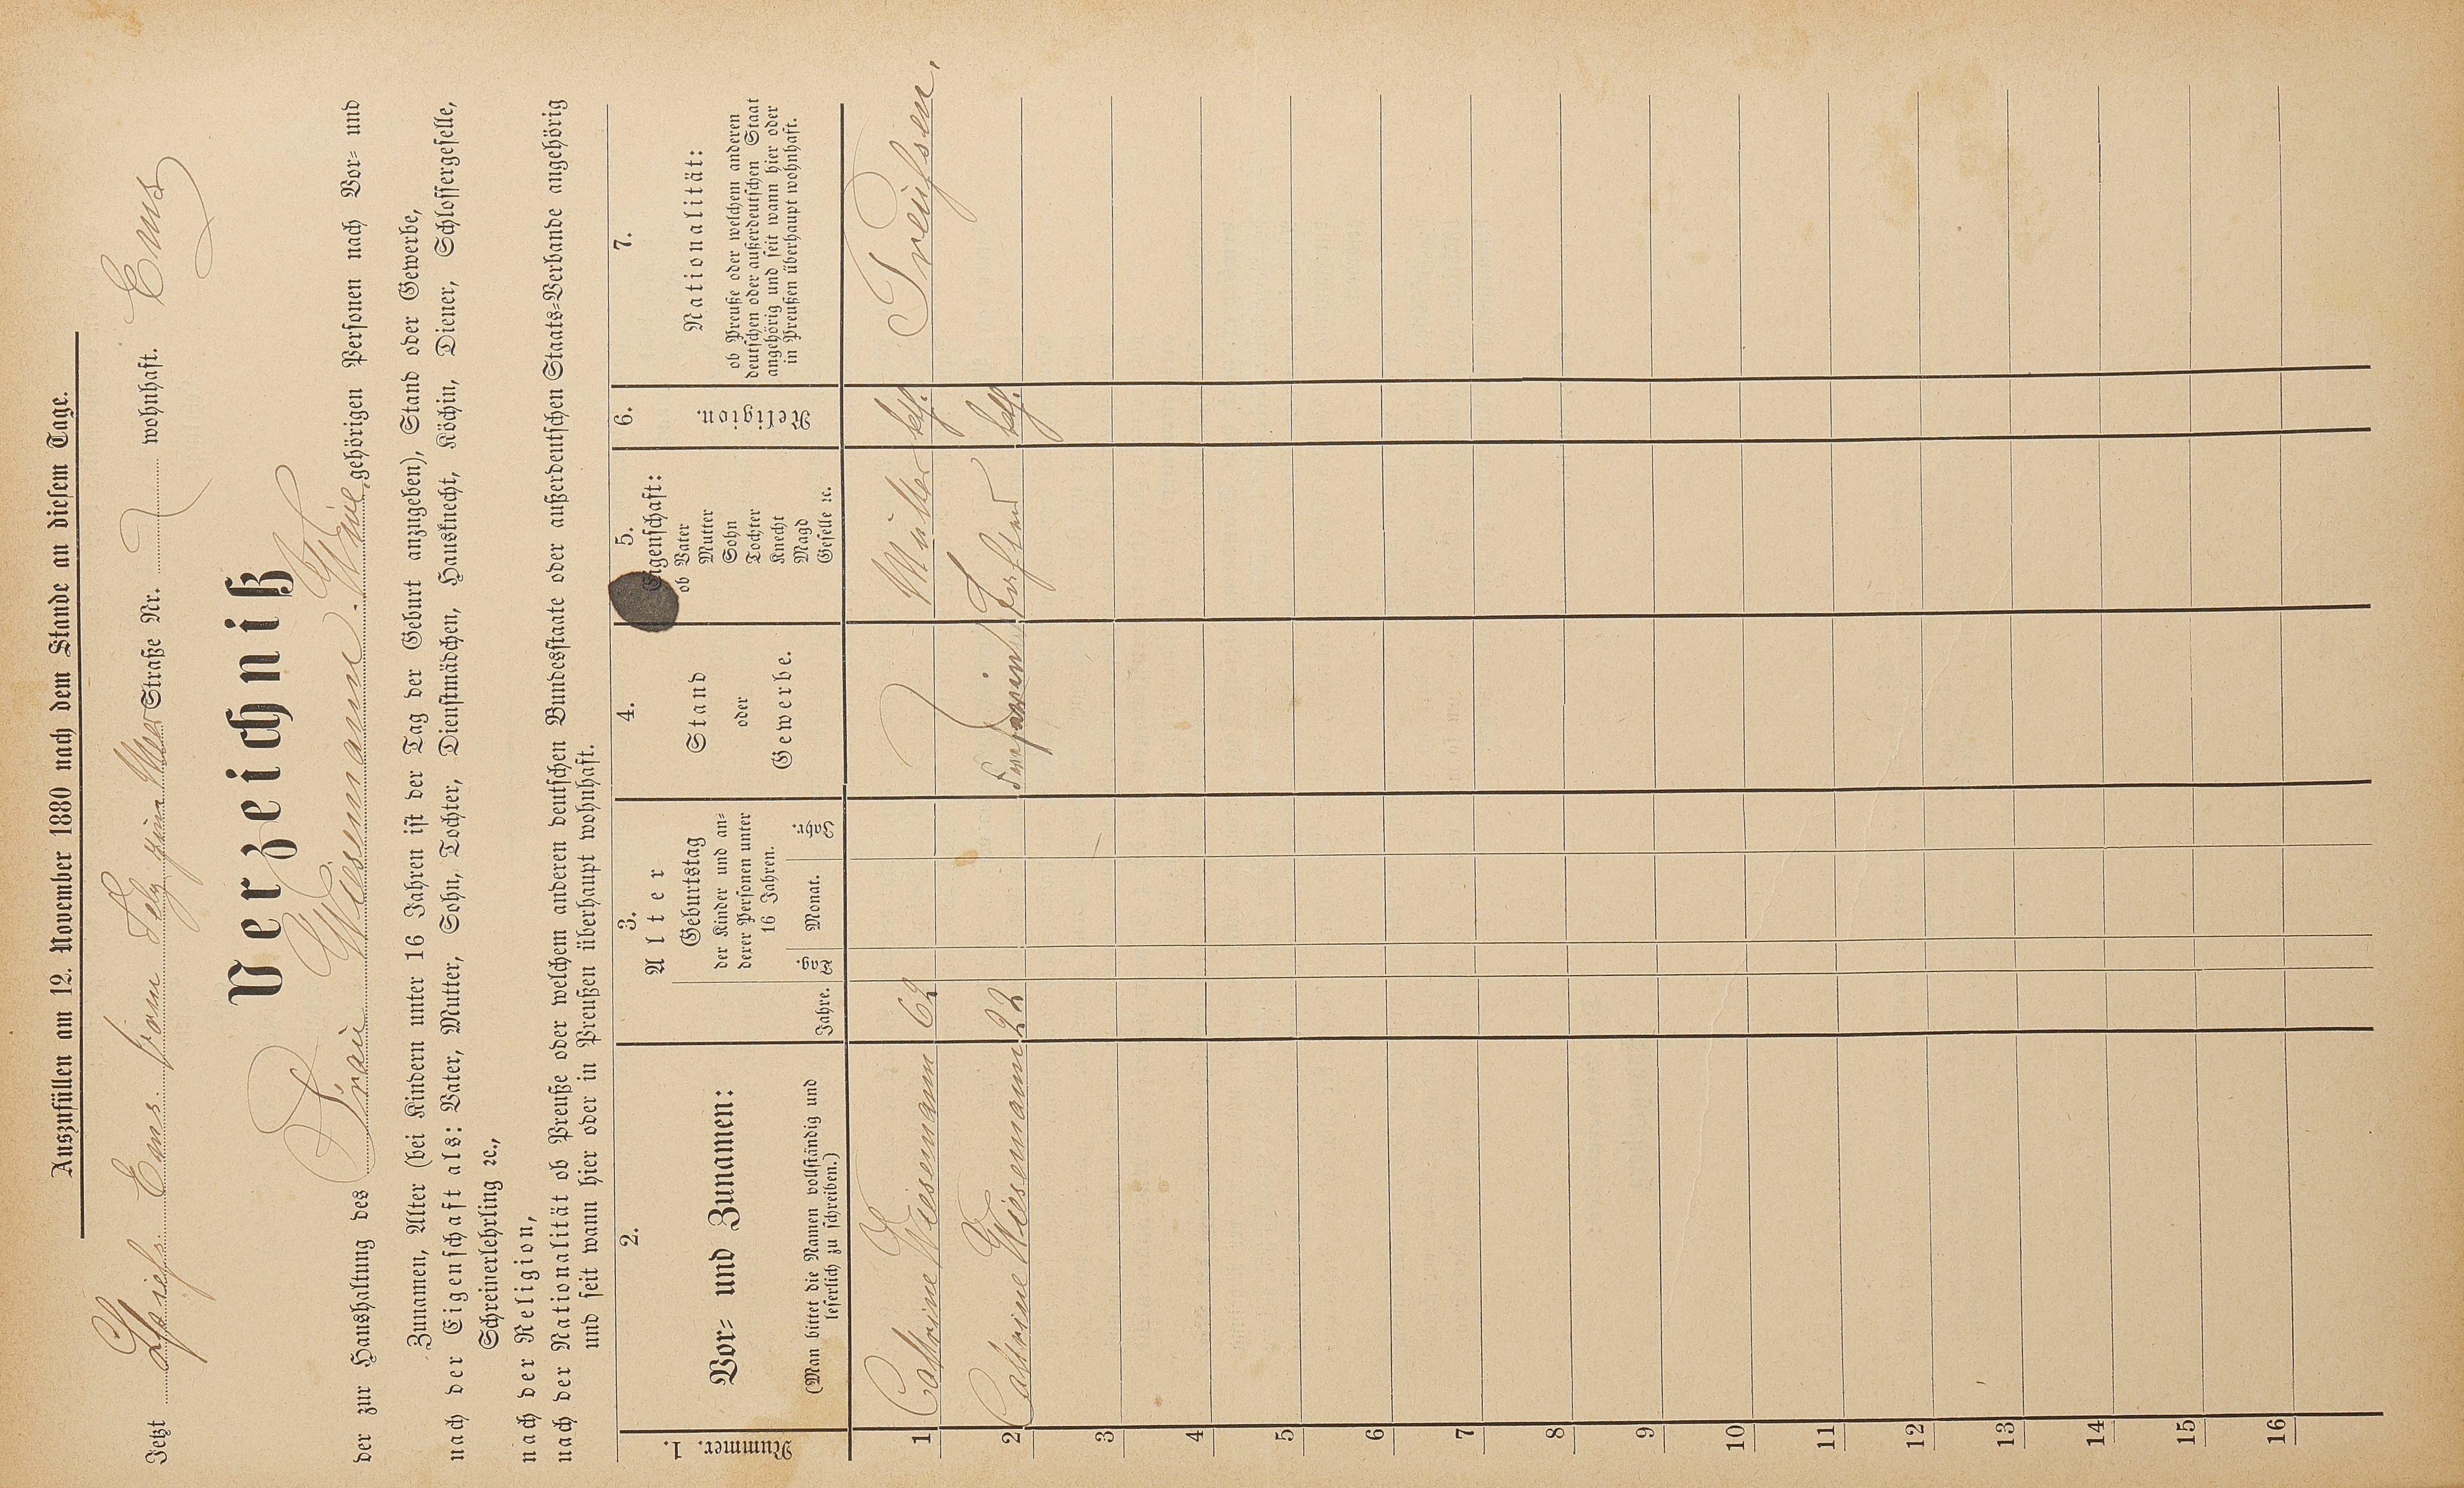 Auszufüllen am 12. November 1880 nach dem Stande an diesem Tage.
Jetzt Ems Straße Nr. wohnhaft. Ems
Verzeichniß
der zur Haushaltung des Frau Wiesemann. Wwe. gehörigen Personen nach Vor- und
Zunamen, Alter (bei Kindern unter 16 Jahren ist der Tag der Geburt anzugeben), Stand oder Gewerbe,
nach der Eigenschaft als: Vater, Mutter, Sohn, Tochter, Dienstmädchen, Hausknecht, Köchin, Diener, Schlossergeselle,
Schreinerlehrling ꝛc.,
nach der Religion,
nach der Nationalität ob Preuße oder welchem anderen deutschen Bundesstaate oder außerdeutschen Staats-Verbande angehörig
und seit wann hier oder in Preußen überhaupt wohnhaft.
1.
Nummer.
2.
Vor- und Zunamen:
(Man bittet die Namen vollständig und
leserlich zu schreiben.)
3.
Alter
Jahre.
Geburtstag
der Kinder und an-
derer Personen unter
16 Jahren.
Tag
Monat.
Jahr.
4.
Stand
oder
Gewerbe.
5.
Eigenschaft:
ob Vater
Mutter
Sohn
Tochter
Knecht
Magd
Geselle ꝛc.
6.
Religion.
7.
Nationalität:
ob Preuße oder welchem anderen
deutschen oder außerdeutschen Staat
angehörig und seit wann hier oder
in Preußen überhaupt wohnhaft.
1 Cathrine Wiesemann 62 Mutter kth. Preußen.
2 Cathrine Wiesemann 22 Tochter kth.
3
4
5
6
7
8
9
10
11
12
13
14
15
16